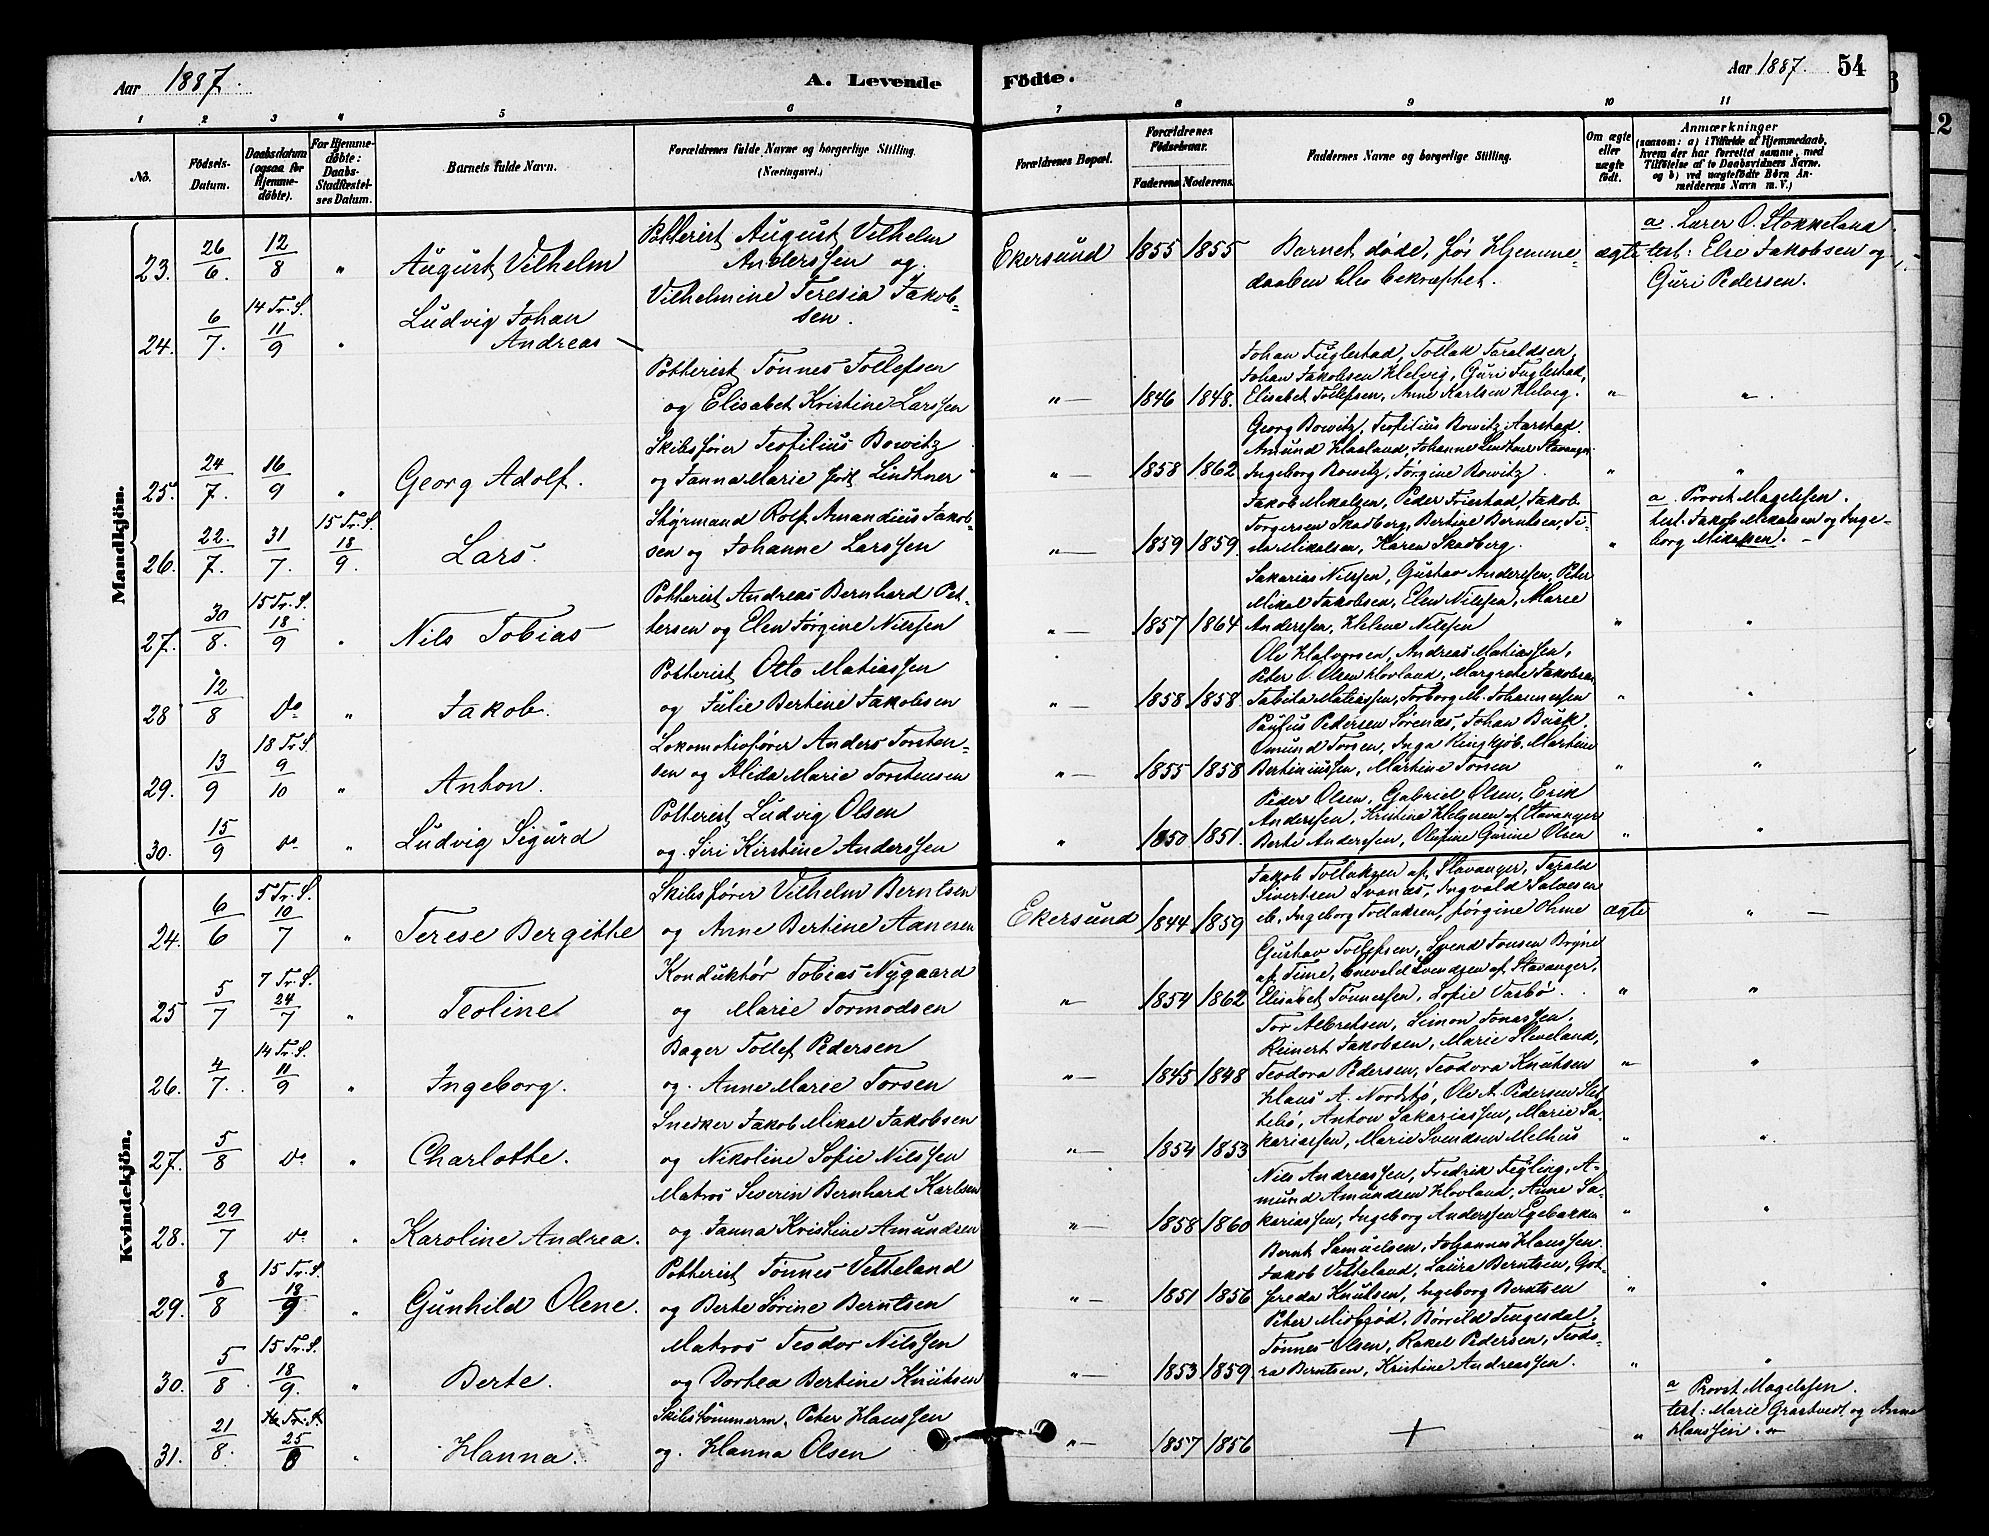 Aar 1887.
A. Levende
Födte.
Aar 1887.
54
1 2 3 4 5 6 7 8 9 10 11
No.
Födsels-Datum.
Daabsdatum (ogsaa for Hjemmedöbte).
For Hjemmedöbte: Daabs-Stadfæstelses Datum.
Barnets fulde Navn.
Forældrenes fulde Navne og borgerlige Stilling.
(Næringsvei.)
Forældrenes Bopæl.
Forældrenes Födselsaar.
Faderens. Moderens.
Faddernes Navne og borgerlige Stilling.
Om ægte eller uægte födt.
Anmærkninger
(saasom: a) i Tilfælde af Hjemmedaab,
hvem der har forrettet samme, med
Tilföielse af to Daabsvidners Navne.
og b) ved uægtefödte Börn Anmelderens Navn m. V.)
Mandkjön.
23. 26/6. 12/8 " August Vilhelm
Potterist August Vilhelm
Anderssen og
Vilhelmine Teresia Jakobsen.
Ekersund 1855 1855
Barnet døde, før Hjemmedaaben blev bekræftet.
ægte
a. Lærer O. Stokkeland
test: Else Jakobsen og
Guri Pedersen.
24. 6/7. 14 Tr. S. 11/9 " Ludvig Johan
Andreas
Potterist Tønnes Tollefsen
og Elisabet Kristine Larssen
"— 1846 1848.
Johan Fuglestad, Tollak Taraldsen,
Johan Jakobsen Helvig, Guri Fuglestad,
Elisabet Tollefsen, Anne Karlsen Helvig.
" "
25. 24/7. 16/9 " Georg Adolf.
Skibsfører Teofilius Bowitz
og Janna Marie født Lindtner
"— 1858 1862
Georg Bowitz, Teofilius Bowitz Aarstad
Amund Haaland, Johanne Lindtner Stavanger
Ingeborg Bowitz, Jørgine Bowitz.
" "
26. 22./7. 31/7. 15 Tr. S. 18/9. Lars.
Styrmand Rolf Amandius Jakobsen og Johanne Larssen
"— 1859 1859
Jakob Mikalsen, Peder Friestad, Jakob
Torgersen Skadberg, Bertine Berntsen, Tina Mikalsen, Karen Skadberg.
"
a. Provst Magelssen.
test. Jakob Mikalsen og Ingeborg Mikalsen.
27. 30/8. 15 Tr. S. 18/9 " Nils Tobias
Potterist Andreas Bernhard Pettersen og Elen Jørgine Nilssen
"— 1857 1864
Sakarias Nilssen, Gustav Anderssen, Peter
Mikal Jakobsen, Elen Nilssen, Marie
Anderssen, Helene Nilssen
" "
28 12/8 do " Jakob.
Potterist Otto Matiassen
og Julie Bertine Jakobsen
"— 1858 1858
Ole Halvorsen, Andreas Matiassen,
Peter O. Olsen Hovland, Margrete Jakobsen
Tabita Matiassen, Torborg M. Johannessen
" "
29. 13/9 18 Tr. S. 9/10 " Anton.
Lokomotivfører Anders Torstensen og Alida Marie Torstensen
"— 1855 1858
Paulus Pedersen Sørenæs, Johan Busk.
Omund Torsen, Inga Ringkjøb, Martine
Bertiniussen, Martine Torsen
" "
30. 15/9 do " Ludvig Sigurd
Potterist Ludvig Olsen
og Siri Kirstine Anderssen
" 1850 1851.
Peder Olsen, Gabriel Olsen, Erik
Anderssen, Kristine Helgesen af Stavanger
Berte Anderssen, Olufine Gurine Olsen
" "
Kvindekjön.
24. 6/6 5 Tr. S. 10/7 " Terese Bergitte
Skibsfører Vilhelm Berntsen
og Anne Bertine Aanesen
Ekersund 1844 1859
Jakob Tollaksen af Stavanger, Tarald
Sivertsen Svanæs, Ingvald Salvesen
eb, Ingeborg Tollaksen, Jørgine Ohme
ægte "—
25 5/7 7 Tr. S. 24/7 " Teoline
Konduktør Tobias Nygaard
og Marie Tormodsen
"— 1854 1862
Gustav Tollefsen, Svend Jonsen Bryne
af Time, Enevald Svendsen af Stavanger,
Elisabet Tønnessen, Sofie Vasbø.
" "
26. 4/7. 14 Tr. S. 11/9 " Ingeborg.
Bager Tollef Pedersen
og Anne Marie Torsen
"— 1845 1848
Tor Albretsen, Simon Jonassen,
Reinert Jakobsen, Marie Sleveland,
Teodora Pedersen, Teodora Knutsen
" "
27. 5/8 do " Charlotte.
Snedker Jakob Mikal Jakobsen
og Nikoline Sofie Nilssen
"— 1854 1853
Hans A. Nordstø, Ole A. Pedersen Slettebø, Anton Sakariassen, Marie Sakariassen, Marie Svendsen Melhus
" "
28. 29/7 do " Karoline Andrea.
Matros Severin Bernhard Karlsen
og Janna Kristine Amundsen
"— 1858 1860
Nils Andreassen, Fredrik Feyling, Amund Amundsen Hovland, Anne Sakariassen, Ingeborg Anderssen Egebakken
" "
29. 8/8 15 Tr. S. 18/9 " Gunhild Olene.
Potterist Tønnes Vetteland
og Berte Sørine Berntsen
"— 1851 1856
Bernt Samuelsen, Johannes Hanssen
Jakob Vetteland, Laura Berntsen, Gotfreda Knutsen, Ingeborg Berntsen
" "
30. 5/8 15 Tr. S. 18/9. " Berte.
Matros Teodor Nilssen
og Dortea Bertine Knutsen
"— 1853 1859
Peter Midbrød, Børrild Tengesdal,
Tønnes Olsen, Rakel Pedersen, Teodora Berntsen, Kristine Andreassen.
" "
31. 21/8. 25 " Hanna.
Skibstømmerm. Peter Hanssen
og Hanna Olsen
"— 1857 1856
+
"
a Provst Magelssen.
test: Marie Grastvedt og Anne
Hanssen.